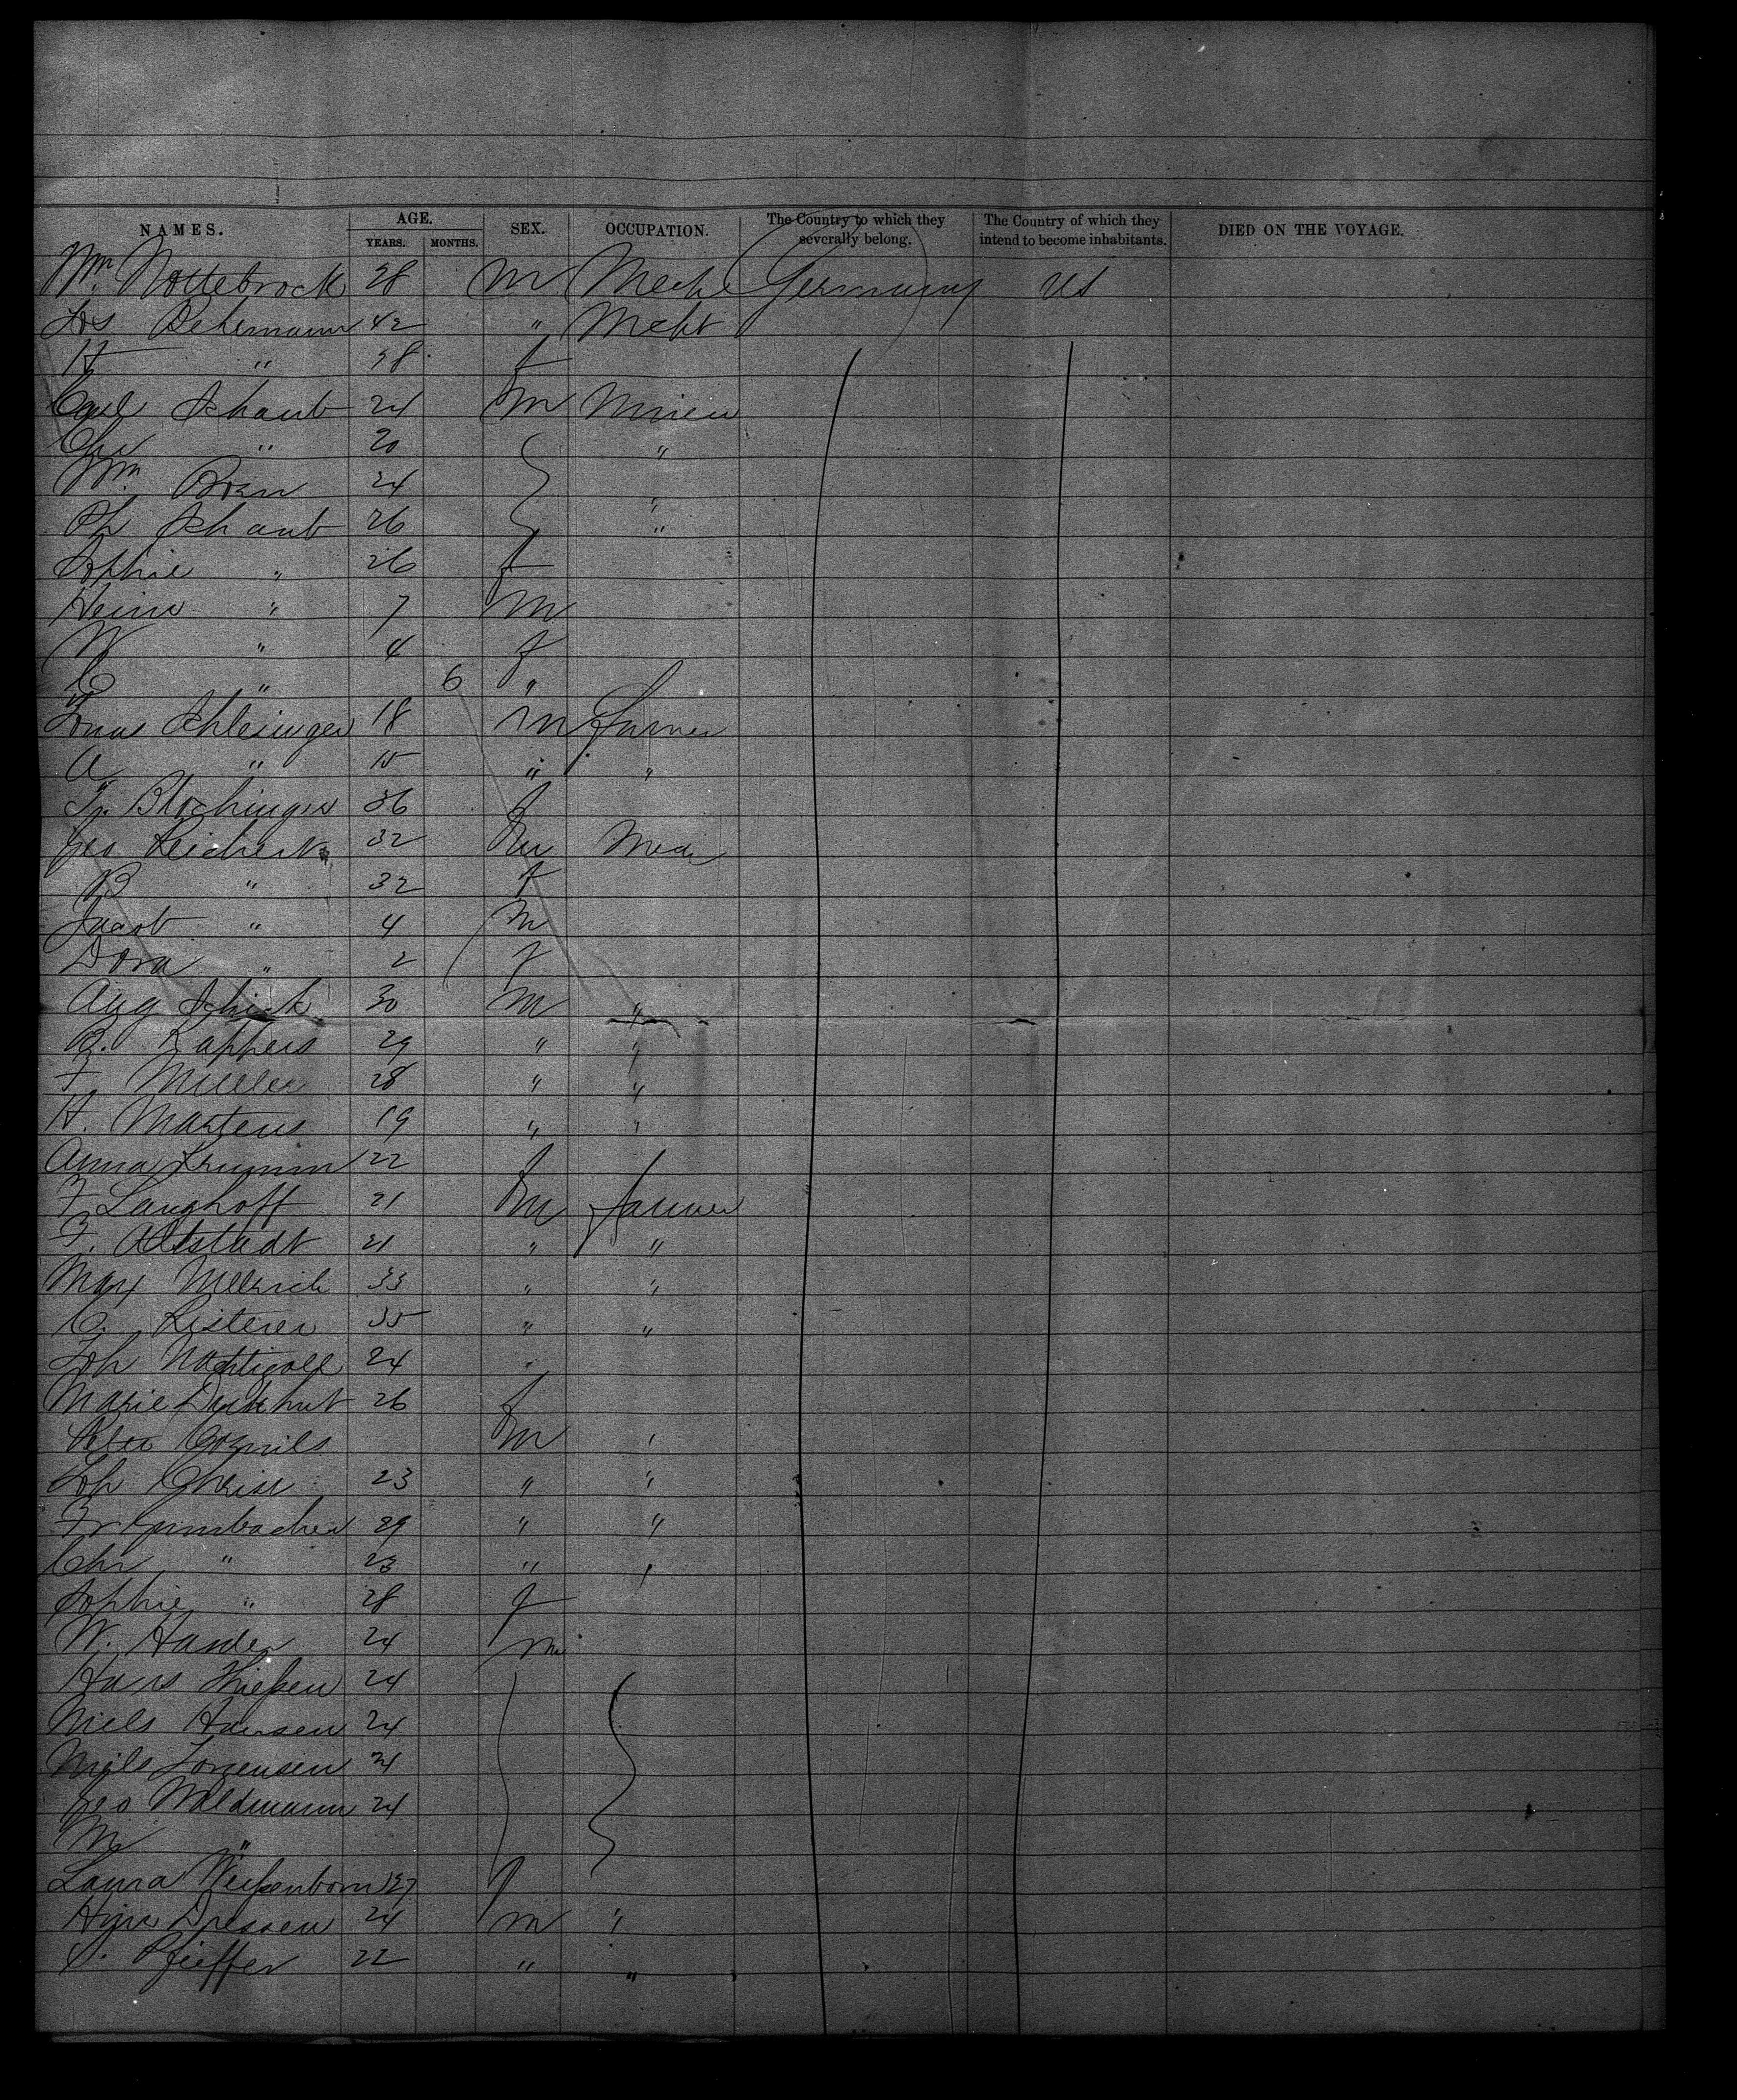 NAMES. AGE. SEX. OCCUPATION. The Country to which they severally belong. The Country of which they intend to become inhabitants. DIED ON THE VOYAGE.
YEARS. MONTHS.
Wm. Nottebrock 38 m Mech Germany US
Jos Behrmann 42 " Mcht
H " 38 f
Carl Schaub 24 m Miner
Chr " 20 "
Wm. Born 24 "
Ph Schaub 26 "
Sophie " 26 f
Heinr " 7 m
W " 4 f
C " 6 "
Jonas Schlesinger 18 m Farmer
A " 15 " "
Fr. Blochinger 36 f
Geo Reichert 32 m Mech
B " 32 f
Jacob " 4 m
Dora " 2 f
Aug Schick 30 m "
B. Kappers 29 " "
F. Mueller 28 " "
H. Martens 19 " "
Anna Krumm 22 f
F Langhoff 21 m farmer
F. Altstadt 21 " "
Max Ullrich 33 " "
C. Kisterer 35 " "
Joh Nachtigall 24 "
Marie 26 f
Peter Cornils m "
Joh Christ 23 " "
Fr Grumbacher 29 " "
Chr " 23 " "
Sophie " 28 f
W. Harder 24 m
Hans Thießen 24
Niels Hansen 24
Niels Sorensen 24
Geo Waldmann 24
M "
Laura Weißenborn 27 f
Hinr Dressen 24 m "
S. Pfeiffer 22 " "